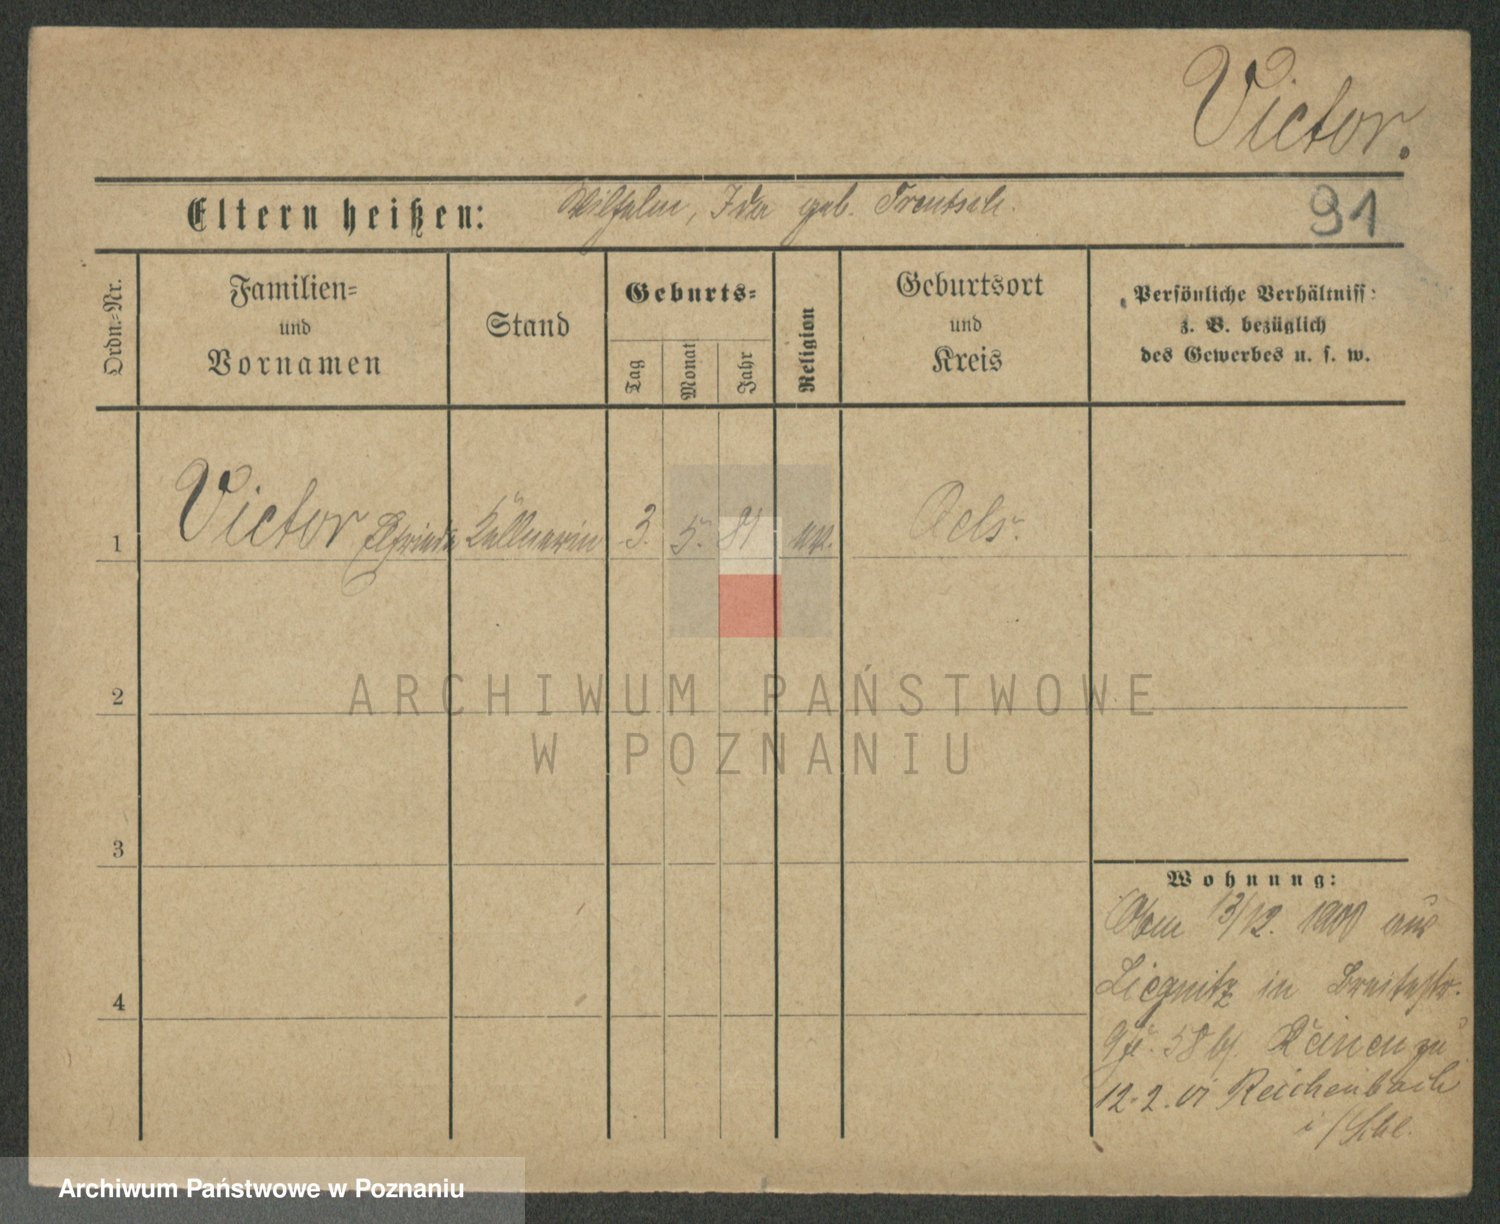 Victor.
Eltern heißen: Wilhelm, Ida geb. Trentsch.
91
Ordn.-Nr.
Familien- und Vornamen
Stand
Geburts-
Tag
Monat
Jahr
Religion
Geburtsort und Kreis
Persönliche Verhältniss:
z. B. bezüglich
des Gewerbes u. s. w.
1 Victor Elfriede Kellnerin 3. 5. 81 ev. Oels.
2
ARCHIWUM PAŃSTWOWE
W POZNANIU
3
Wohnung:
13/12. 1900 aus
Liegnitz in Breitestr.
58 zu
4
12.2.01 Reichenbach
i/Schl.
Archiwum Państwowe w Poznaniu